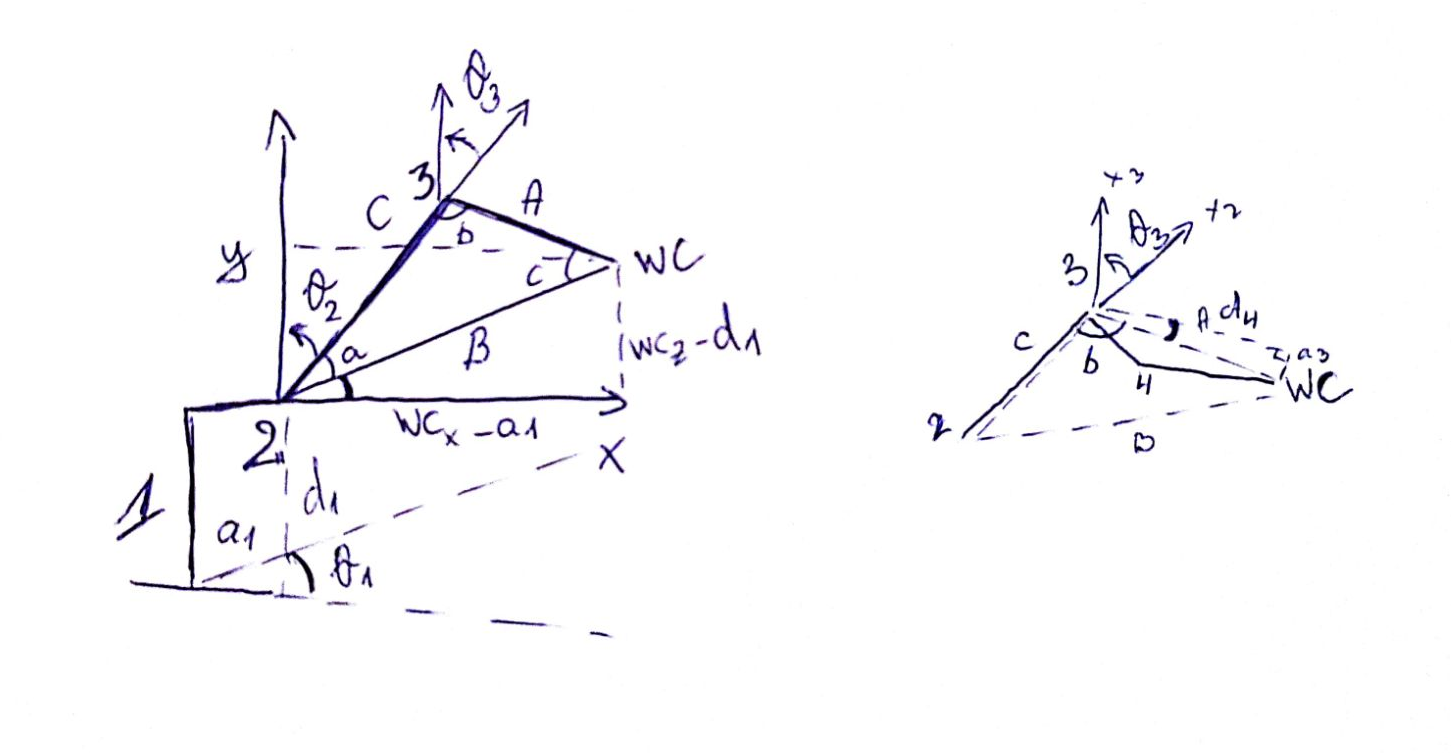 θ3
3
C
A
b
y
c
WC
θ2
a
B
WCz-d1
2
WCx-a1
X
1
d1
a1
θ1
x3
x2
θ3
3
A
d4
C
b
a3
4
WC
2
B